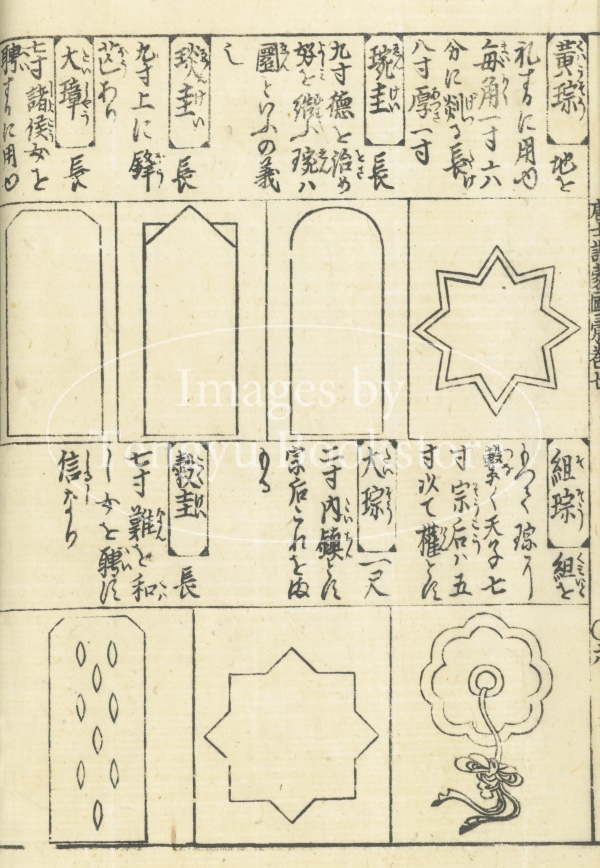 黄琮 地を
礼するに用ゆ
毎角一寸二八
分に剡る長
八寸厚一寸
琬圭 長
九寸徳を治め
好を結ふ琬ハ
圜といふの義
也
琰圭 長
九寸上に鋒
芒あり
大璋 長
七寸諸侯女を
聘するに用ゆ
組琮 組を
もつて琮の
撃く天子七
寸宗后ハ五
寸以て權とす
大琮 一尺
二寸内鎮とす
宗后これを守
る
穀圭 長
七寸難を和
し女を聘す
信なり
唐土訓蒙圖彙巻七
〇六
Images by
Tenyu Bookstore